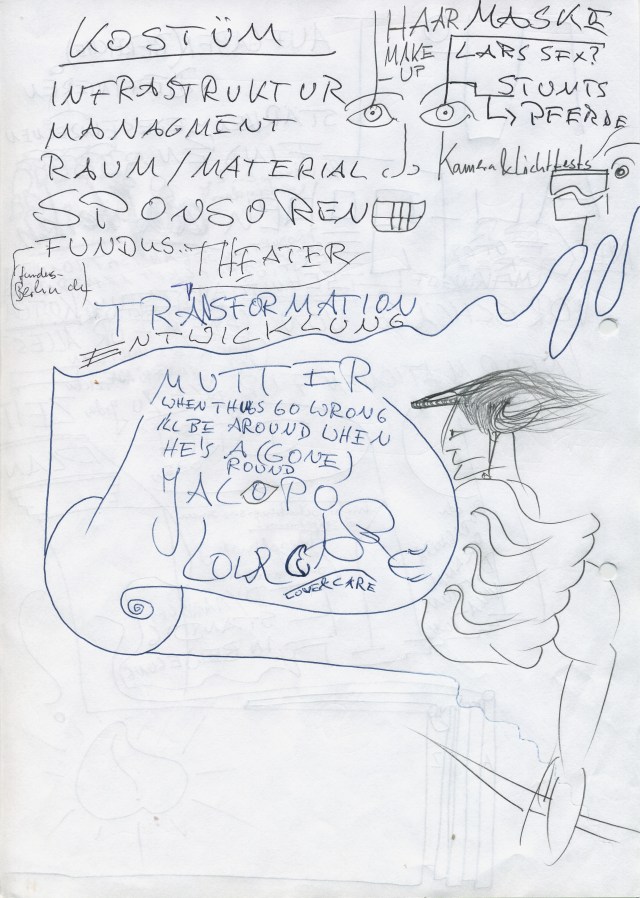 KOSTÜM
HAAR MASKE
MAKE
UP
LARS SEX?
STUNTS
PFERDE
INFRASTRUKTUR
MANAGMENT
RAUM/MATERIAL
Kamera & Lichttests
SPONSOREN
FUNDUS.. THEATER
fundus-
Berlin.de
TRANSFORMATION
ENTWICKLUNG
MUTTER
WHEN THINGS GO WRONG
I'LL BE AROUND WHEN
HE'S A (GONE)
ROUND
JACOPO
COVERCARE